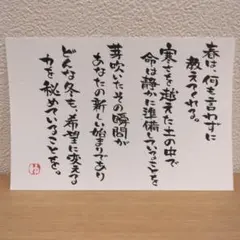 春は、何も言わずに
教えてくれる。
寒さを越えた土の中で
命は静かに準備していることを
芽吹いたその瞬間が
あなたの新しい始まりであり
どんな冬も、希望に変える
力を秘めていることを。